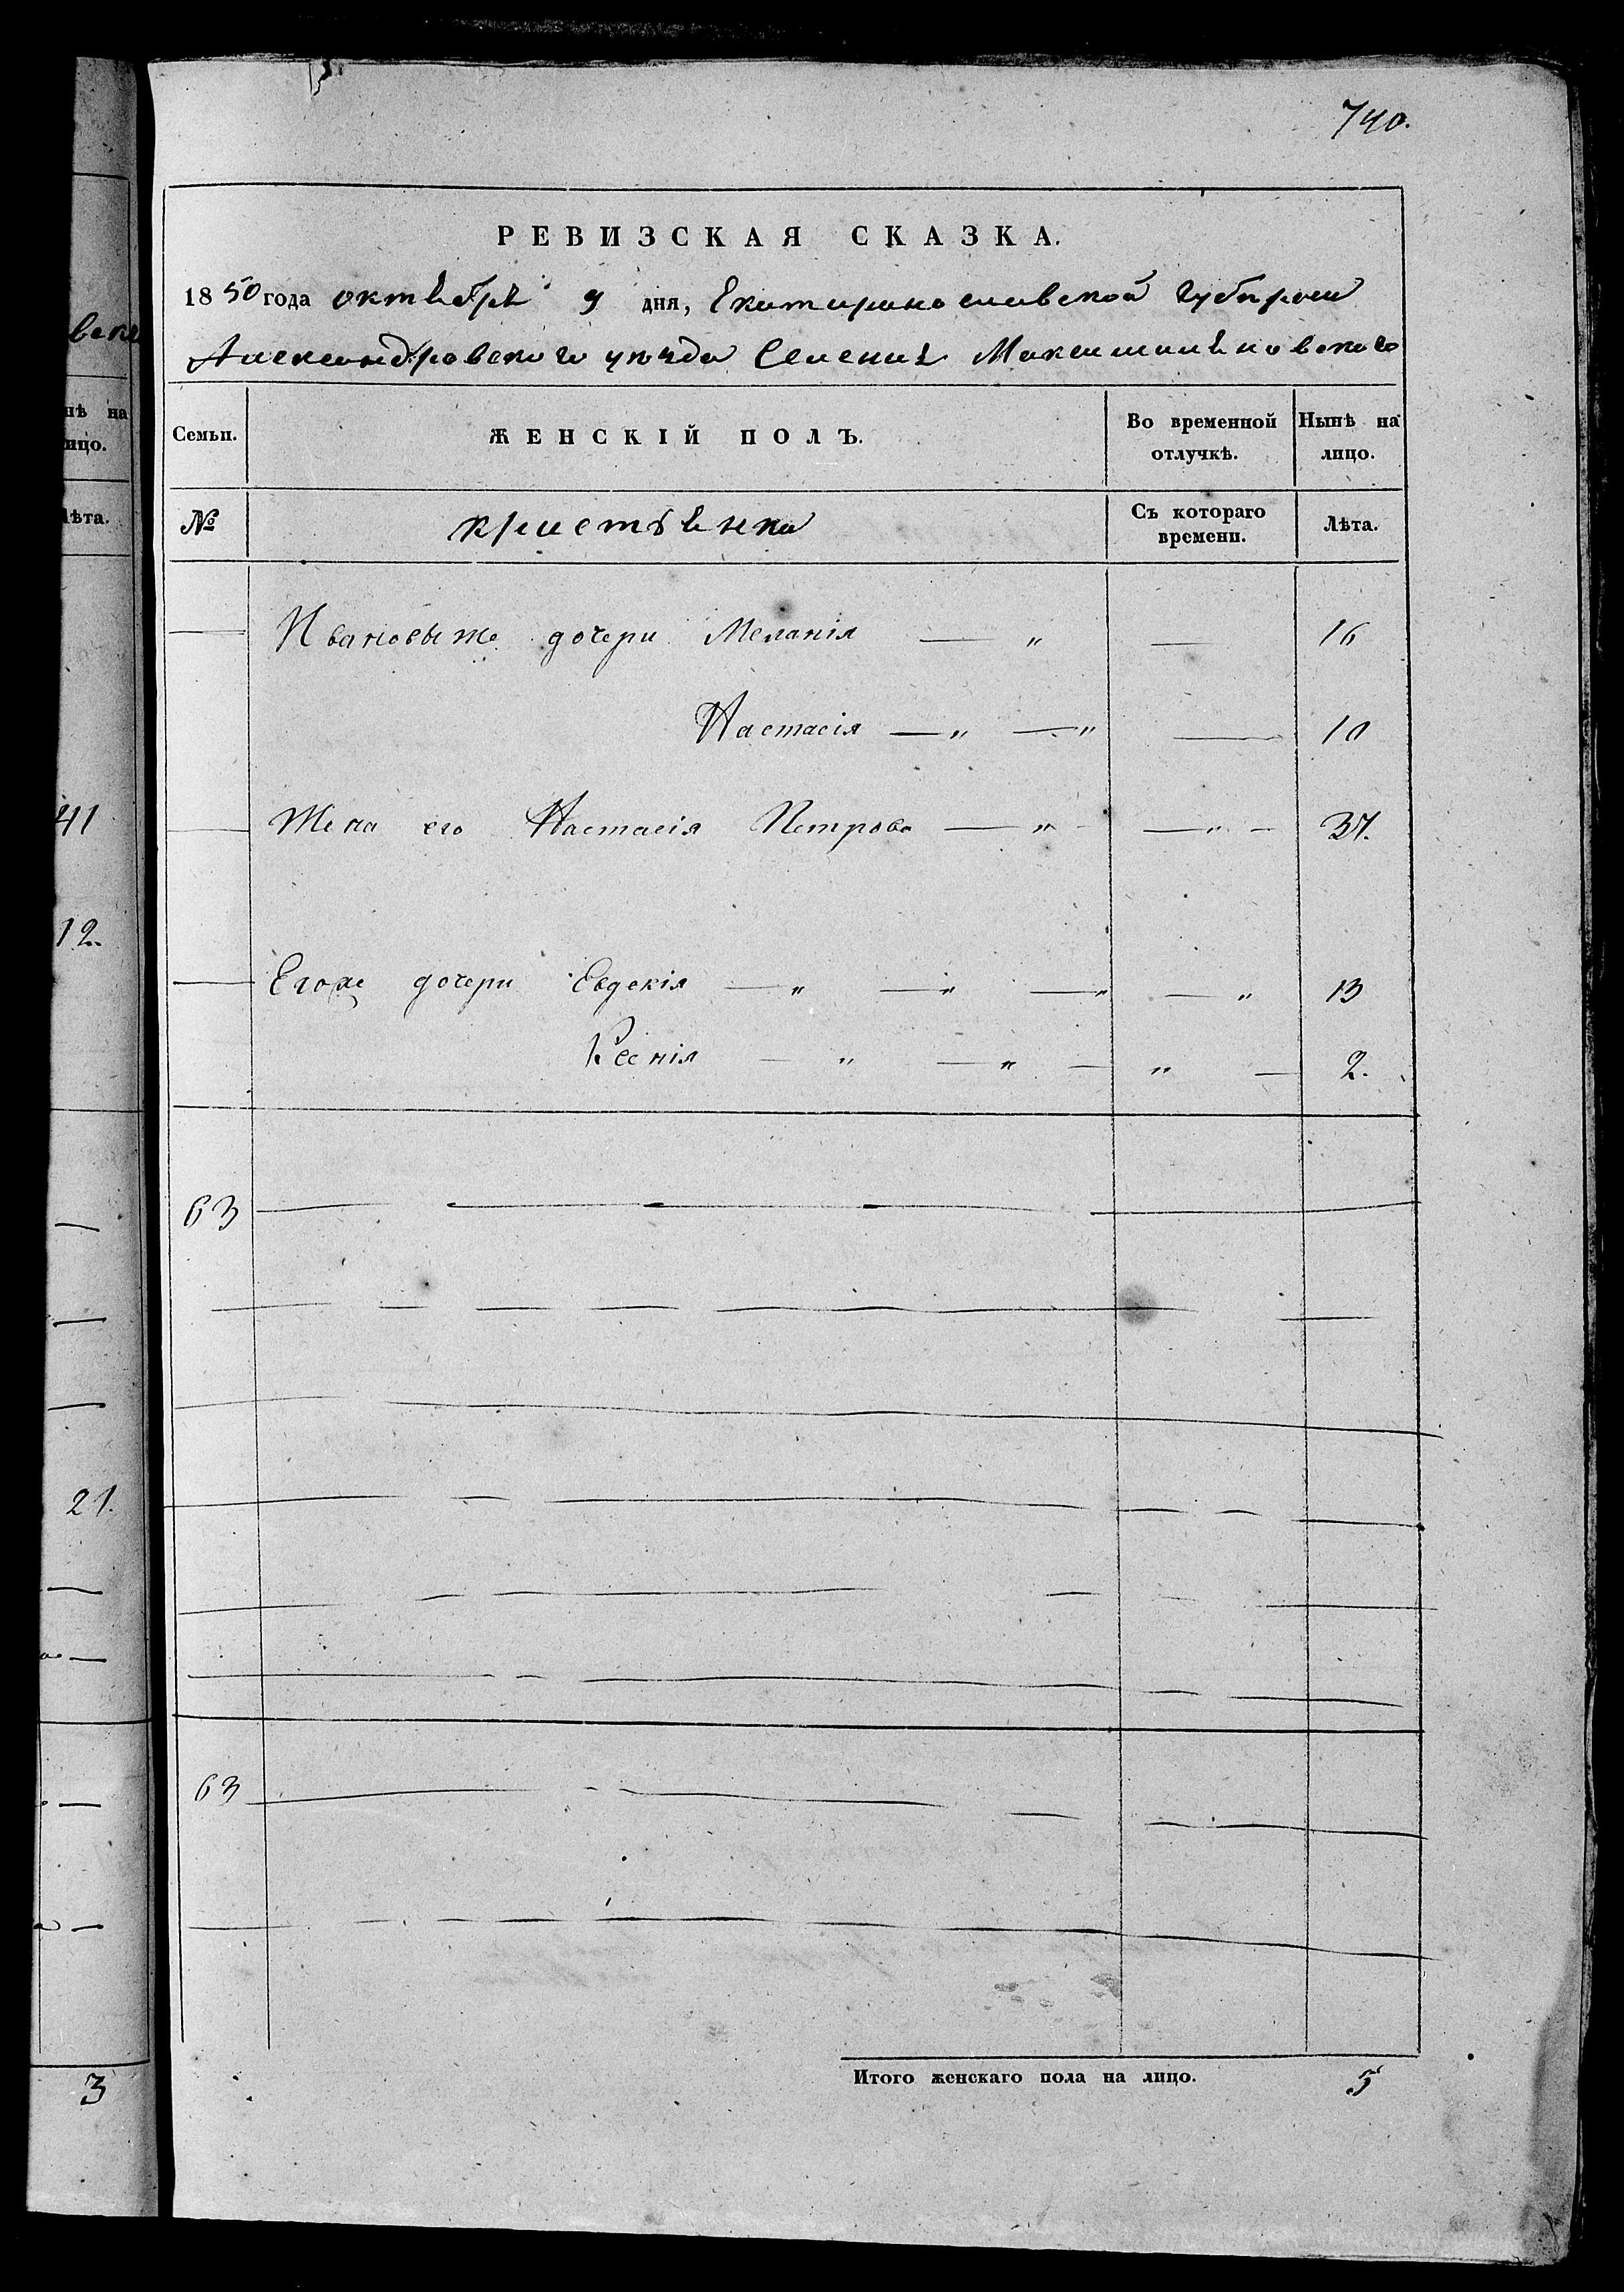 740.
РЕВИЗСКАЯ СКАЗКА.
1850 года октября 9 дня, Екатиринославской Губернии
Александровского уезда Селения Максимилияновского
веке
нѣ на
лицо.
Лѣта.
Семьи. ЖЕНСКІЙ ПОЛЪ. Во временной отлучкѣ. Нынѣ на лицо.
№ крестьянка Съ котораго времени. Лѣта.
— Ивановы же дочери Меланія — " — 16
Настасія — " — " — 10
— Жена его Настасія Петрова — " — — " — 37.
— Его же дочери Евдекія — " — " — " — " 13
Ксенія — " — " — " — 2.
63
63
41
12.
21.
3
Итого женскаго пола на лицо. 5